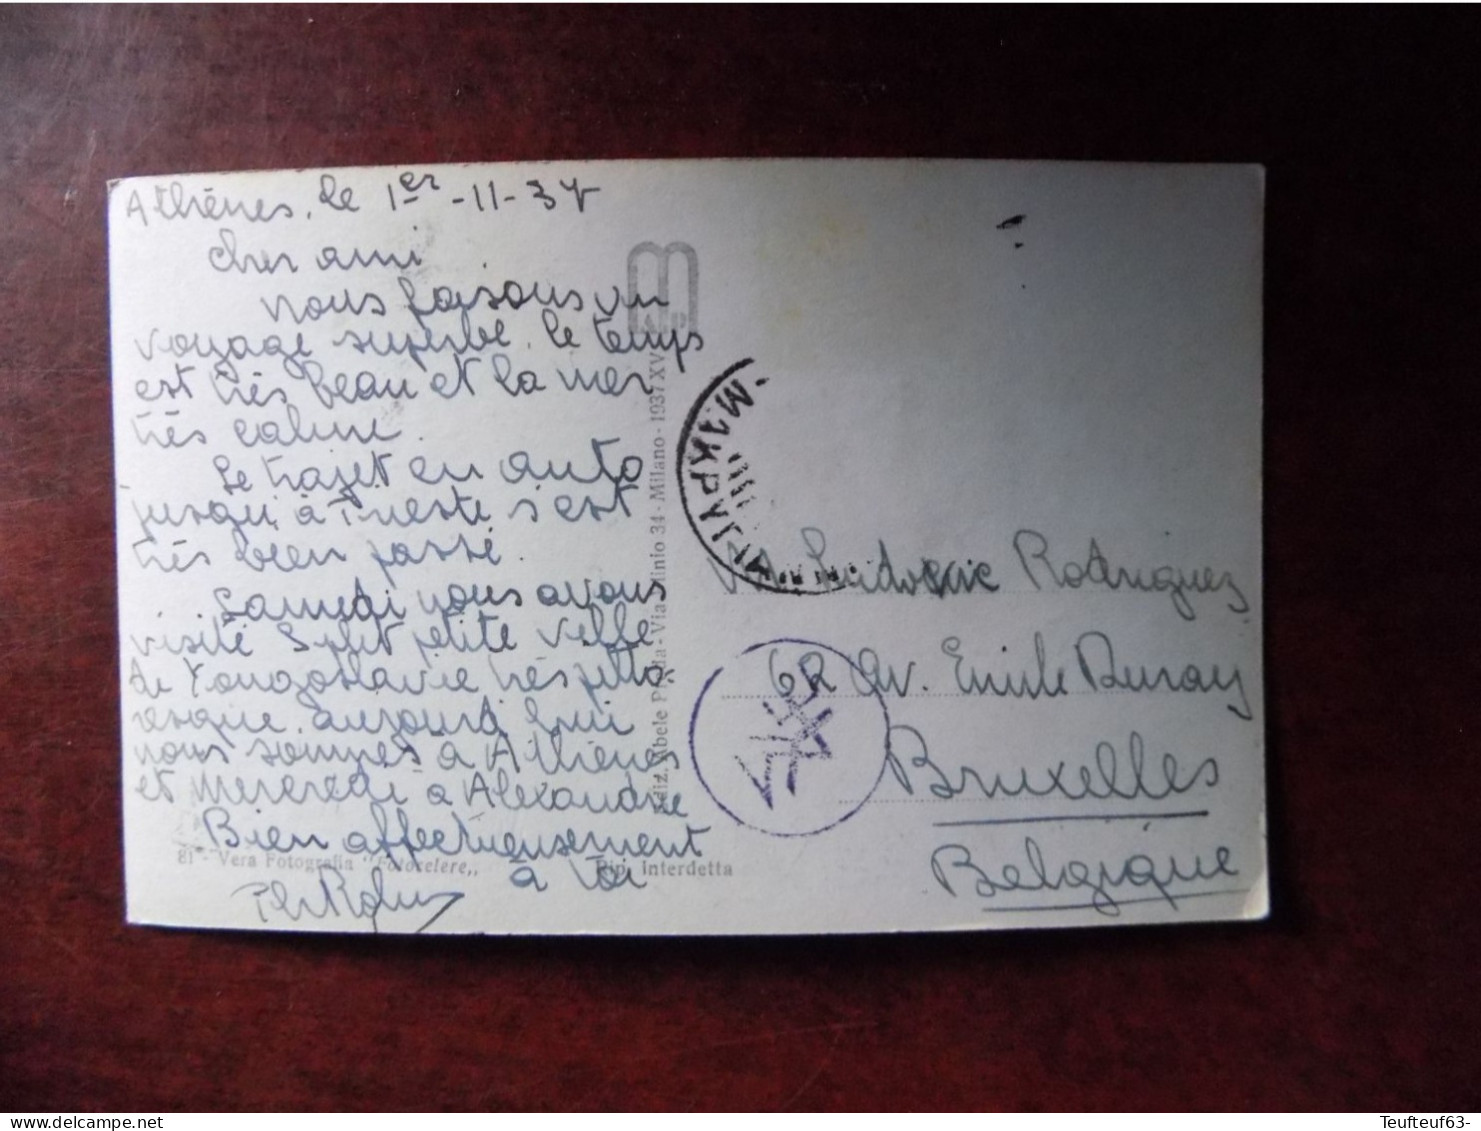 Athènes, le 1er -11-37
Cher ami
nous faisons un
voyage superbe. le temps
est très beau et la mer
très calme.
Le trajet en auto
jusqu'à Trieste s'est
très bien passé.
Samedi nous avons
visité Split petite ville
de Yougoslavie très pitto
resque. aujourd'hui
nous sommes à Athènes
et Mercredi à Alexandrie
Bien affectueusement
à toi
81 - Vera Fotografia "Fotocelere,,
Rip. interdetta
Ediz. Abele - Via Plinio 34 - Milano - 1937 XV
Rodriguez
62 Av. Emile Duray
Bruxelles
Belgique
Teufteuf63-